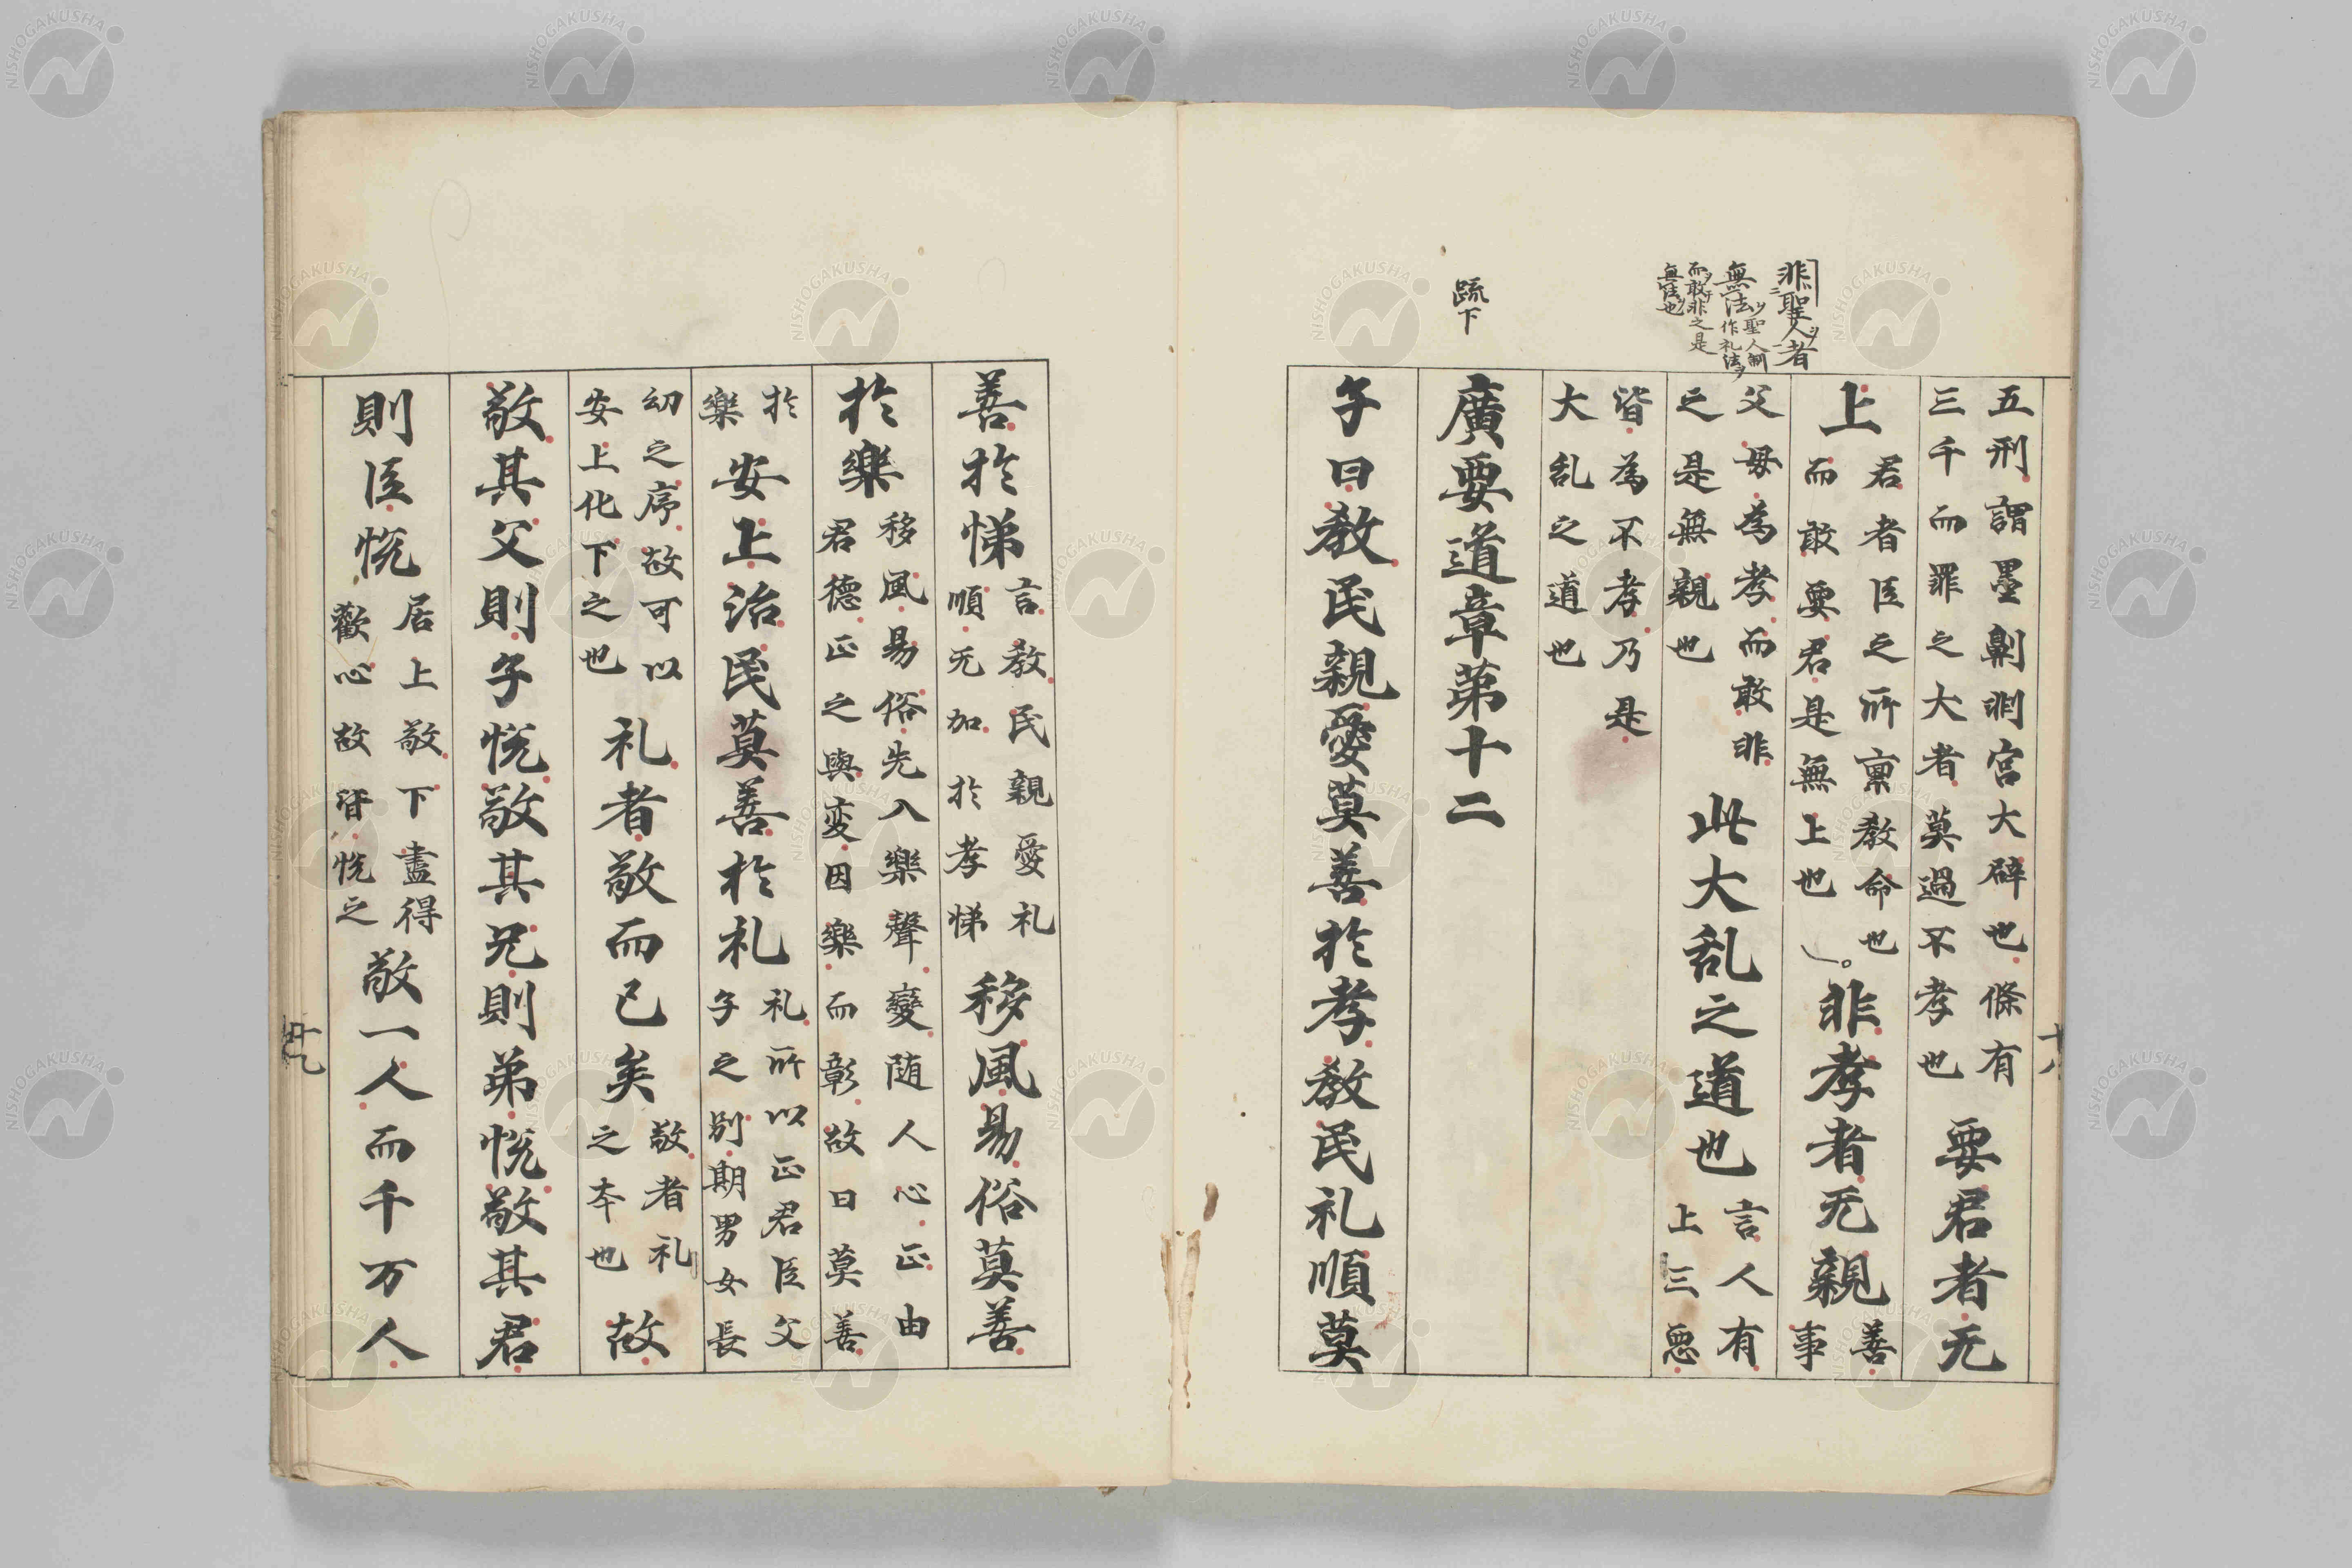 五刑謂墨劓剕宮大辟也條有
三千而罪之大者莫過不孝也
要君者无
上
君者臣之所禀教命也
而敢要君是無上也
非孝者无親
善事
父母為孝而敢非
之是無親也
此大乱之道也
言人有
上三悪
皆為不孝乃是
大乱之道也
廣要道章第十二
子曰教民親愛莫善於孝教民礼順莫
非聖人者
無法
聖人制
作礼法
而敢非之是
無法也
疏下
十八
善於悌
言教民親愛礼
順无加於孝悌
移風易俗莫善
於樂
移風易俗先入樂聲變随人心正由
君德正之與変因樂而彰故曰莫善
於
樂
安上治民莫善於礼
礼所以正君臣父
子之別期男女長
幼之序故可以
安上化下之也
礼者敬而已矣
敬者礼
之本也
故
敬其父則子悦敬其兄則弟悦敬其君
則臣悦
居上敬下盡得
歡心故皆悦之
敬一人而千万人
NISHOGAKUSHA